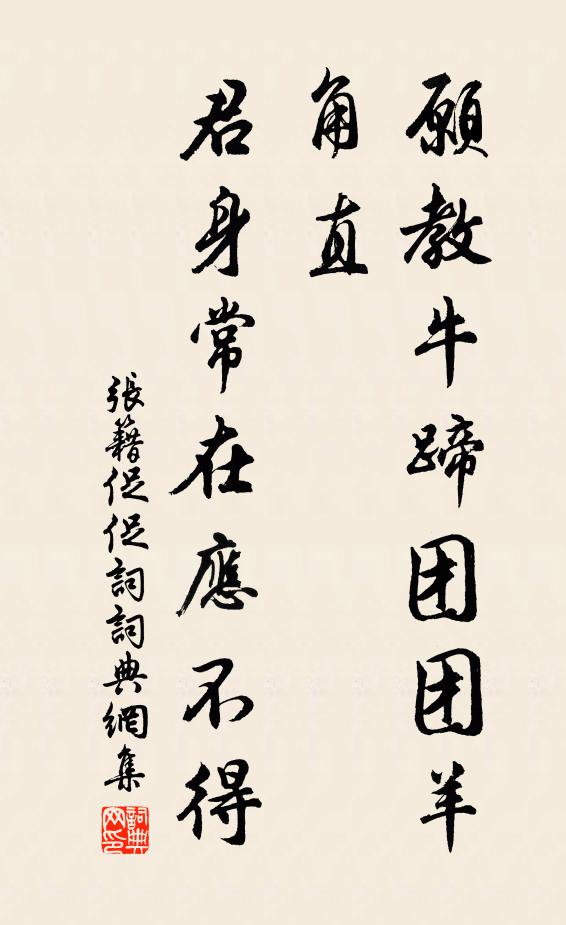 願教牛蹄团团羊
角直
君身常在應不得
張籍促促詞詞典網集
詞典
网印